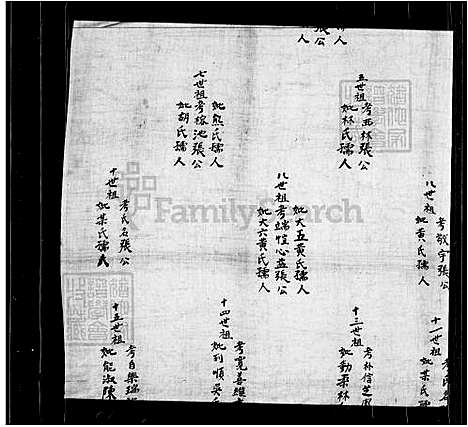 張公
孺人
五世祖
考西林張公
妣林氏孺人
七世祖考榕池張公
妣熊氏孺人
妣胡氏孺人
八世祖
考敬宇張公
妣黃氏孺人
八世祖考端愷心益張公
妣大五黃氏孺人
妣大六黃氏孺人
十世祖
考氏名張公
妣某氏孺人
十一世祖
妣某氏
十三世祖
考朴信芝
妣勤栗林
十四世祖
考寬善維
妣列順吳
十五世祖
考自樂瑞
妣能淑陳
FamilySearch